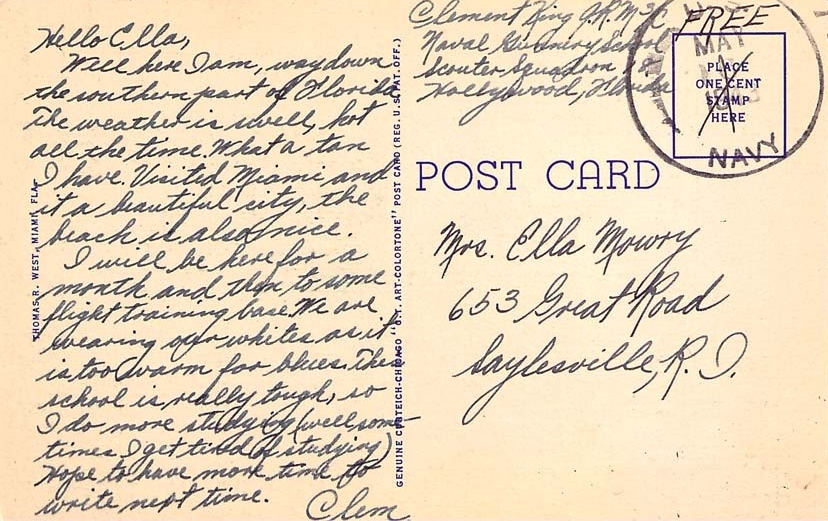 Hello Ella,
Well here I am, way down
the southern part of Florida
The weather is swell, hot
all the time. What a tan
I have. Visited Miami and
it a beautiful city, the
beach is also nice.
I will be here for a
month and then to some
flight training base. We are
wearing our whites as it
is too warm for blues. This
school is really tough, so
I do more studying (well some-
times I get tired of studying)
Hope to have more time to
write next time.
Clem
THOMAS R. WEST, MIAMI, FLA.
GENUINE CURTEICH-CHICAGO "C.T. ART-COLORTONE" POST CARD (REG. U.S. PAT. OFF.)
Clement King J.R. M3/C
Naval Gunnery School
Scouter Squadron
Hollywood, Florida
FREE
MAY
NAVY
PLACE
ONE CENT
STAMP
HERE
POST CARD
Mrs. Ella Mowry
653 Great Road
Saylesville, R. I.